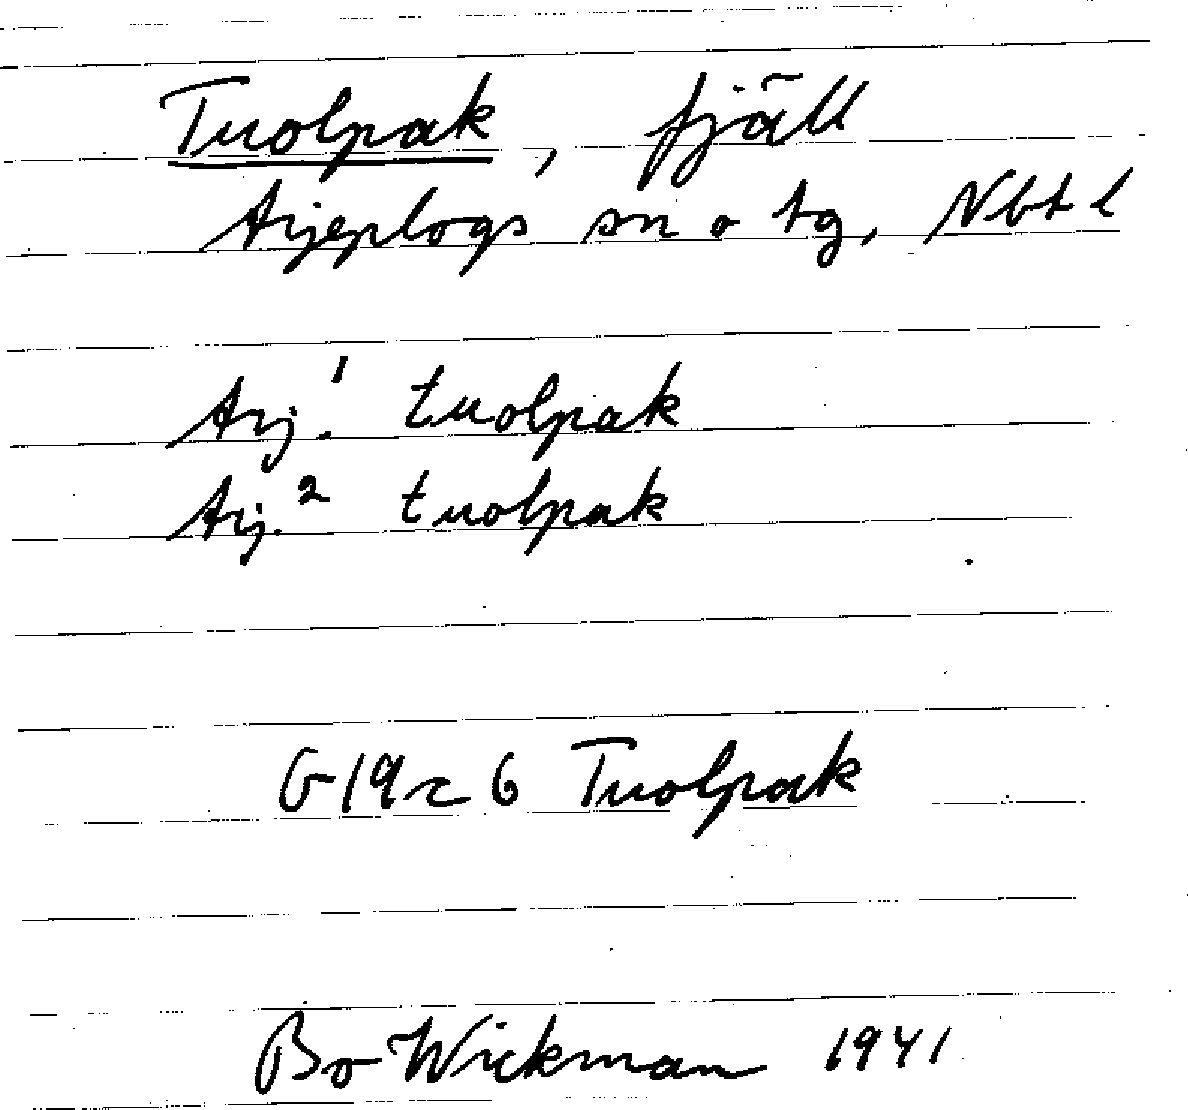 Tuolpak, fjäll
Arjeplogs sn o tg, Nbt l
Arj.¹ tuolpak
Arj.² tuolpak
G19c6 Tuolpak
Bo Wickman 1941